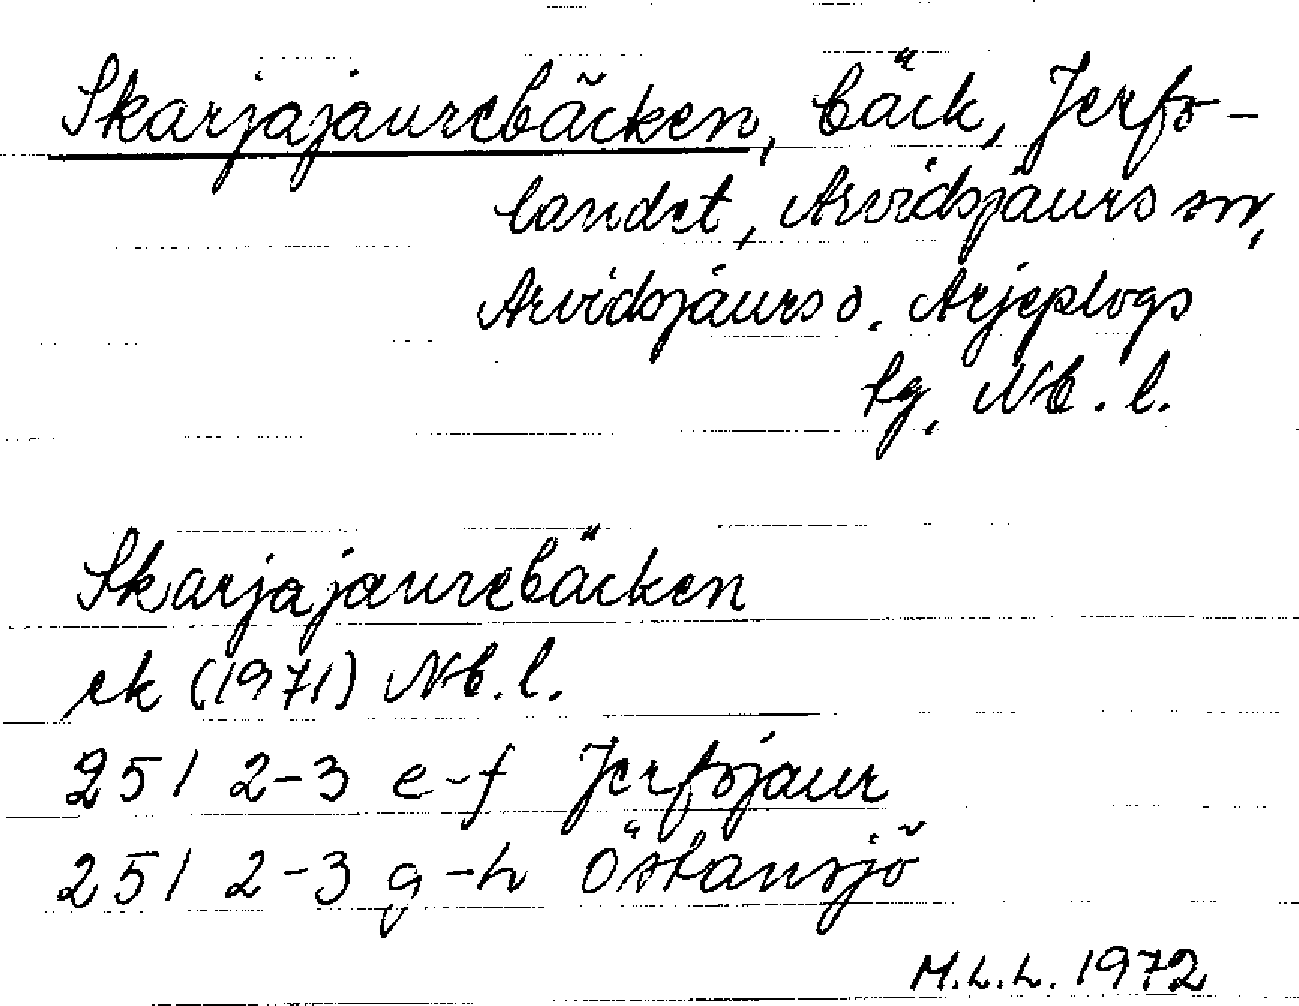 Skarjajaurebäcken, bäck, Jerfo-
landet, Arvidsjaurs sn,
Arvidsjaurs o. Arjeplogs
tg, Nb. l.
Skarjajaurebäcken
ek (1971) Nb. l.
251 2-3 e-f Jerfojaur
251 2-3 g-h Östansjö
M.L.L. 1972